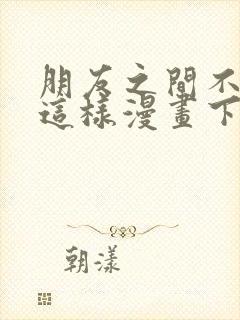 朋友之間不
這樣漫畫下
朝漾